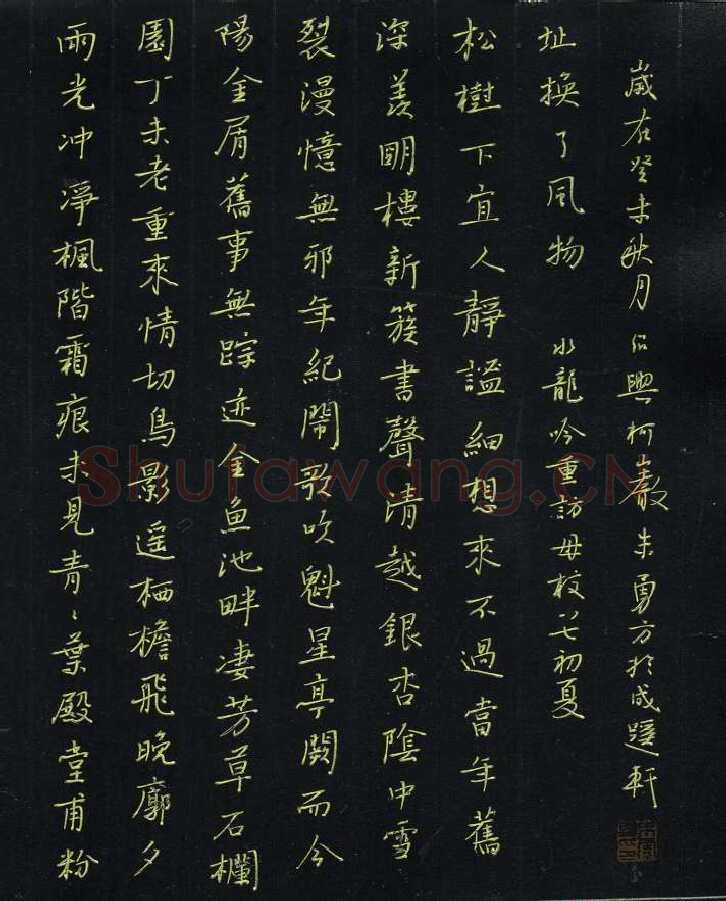 雨光冲淨楓階霜痕未見青々葉殿堂甫粉
園丁未老重來情切鳥影遥栖檐飛晚廓夕
陽金屑舊事無踪迹金魚池畔凄芳草石欄
裂漫憶無邪年紀鬧歌吹魁星亭闕而今
深羨明樓新簇書聲清越銀杏陰中雪
松樹下宜人靜謐細想來不過當年舊
址換了風物 水龍吟重訪母校八七初夏
歲在癸未秋月紹興柯朱勇方於成蹊軒
Shufawang.CN